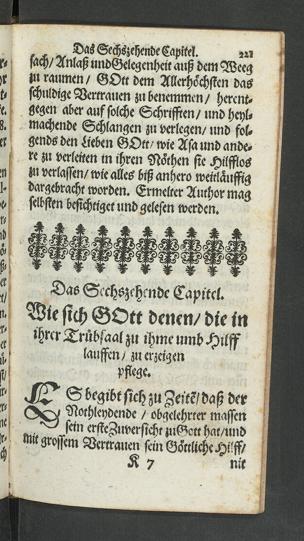 Das Sechszehende Capitel. 221
sach/ Anlaß und Gelegenheit auß dem Weeg
zu raumen/ GOtt dem Allerhöchsten das
schuldige Vertrauen zu benemmen/ herent-
gegen aber auf solche Schrifften/ und heyl-
machende Schlangen zu verlegen/ und fol-
gends den Lieben GOtt/ wie Asa und ande-
re zu verleiten in ihren Nöthen sie Hilfflos
zu verlassen/ wie alles biß anhero weitläuffig
dargebracht worden. Ermelter Author mag
selbsten besichtiget und gelesen werden.
Das Sechszehende Capitel.
Wie sich GOtt denen/ die in
ihrer Trübsaal zu ihme umb Hilff
lauffen/ zu erzeigen
pflege.
ES begibt sich zu Zeitē/ daß der
Nothleydende/ obgelehrter massen
sein erste Zuversicht zu Gott hat/ und
mit grossem Vertrauen sein Göttliche Hilff/
K 7 nit